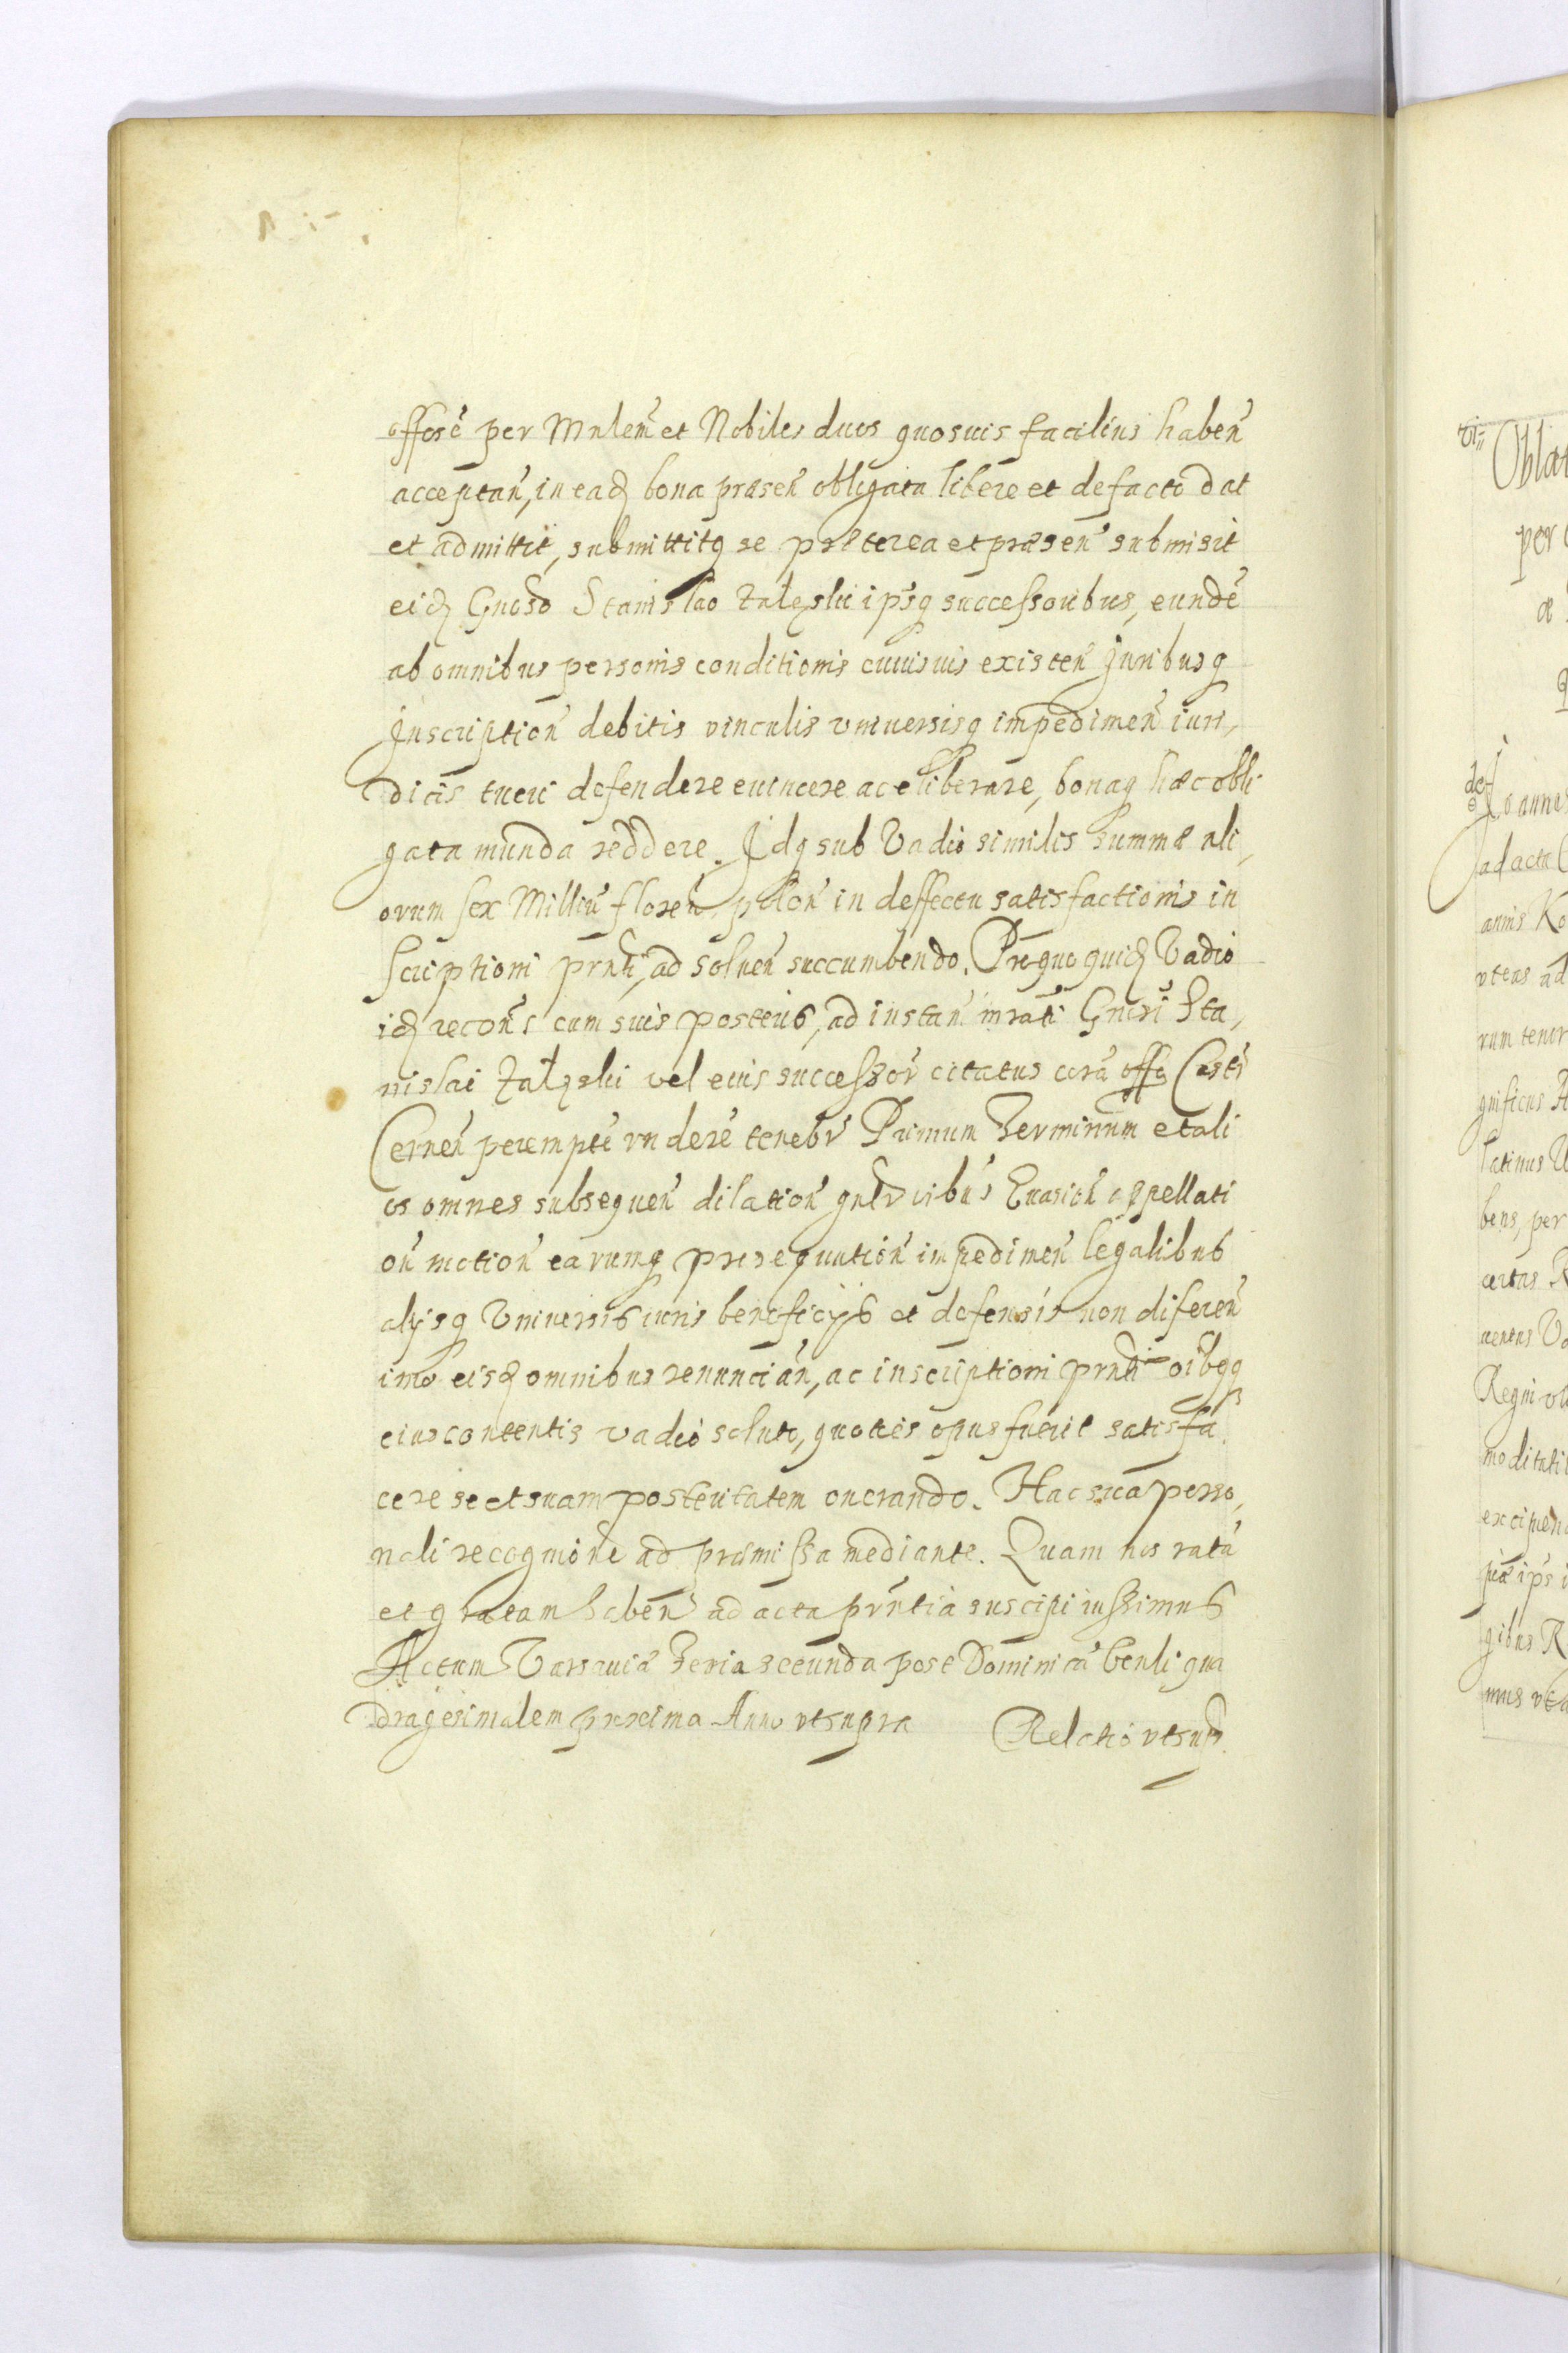 offose per Mnlem et Nobiles duos quosuis facilius haben
acceptan, in eadq bona præsen obligata libere et de facto dat
et admittit, submittitq se præterea et præsen submisit
eidq Gnoso Stanislao Załęski ipsq successoribus, eundē
ab omnibus personis conditionis cuiusuis existen Juribusq
Inscription debitis vinculis vniuersisq impedimen iuri,
dicis tueri defendere euincere ac eliberare, bonaq hæc obli
gata munda reddere. Idq sub Vadio similis summæ ali,
orum sex Milliū floren polon in deffectu satisfactionis in
scriptioni prnti, ad soluen succumbendo. Pro quo quidq Vadio
idq recons cum suis posteris, ad instan mrati Gnosi Sta,
nislai Załęski vel eius successor citatus corā offo Castr
Cernen perempte rndere tenebr Primum Terminum et ali
os omnes subsequen dilation quibus Euasion appellati
on motion earumq prosequution impedimen legalibus
alijsq Vniuersis iuris beneficijs et defensis non diferen
imo eisdq omnibus renuncian, ac inscriptioni prnti oibqq
eius contentis vadio soluto, quoties opus fuerit satisfa
cere se et suam posteritatem onerando. Hac sua perso,
nali recognione ad præmissa mediante. Quam nos ratā
et gratam haben ad acta prntia suscipi iussimus
Actum Varsauiæ Feria secunda post Dominicā Conli qua
dragesimalem proxima Anno vt supra Relatio vt supr
Oblat
per
æ
de
Joannes
ad acta C
annis Ko
vtens ad
rum tenor
gnificus A
latinus
bens, per
certas R
uentus Vo
Regni vo
moditati
excipiend
ips
gibus R
mus vt